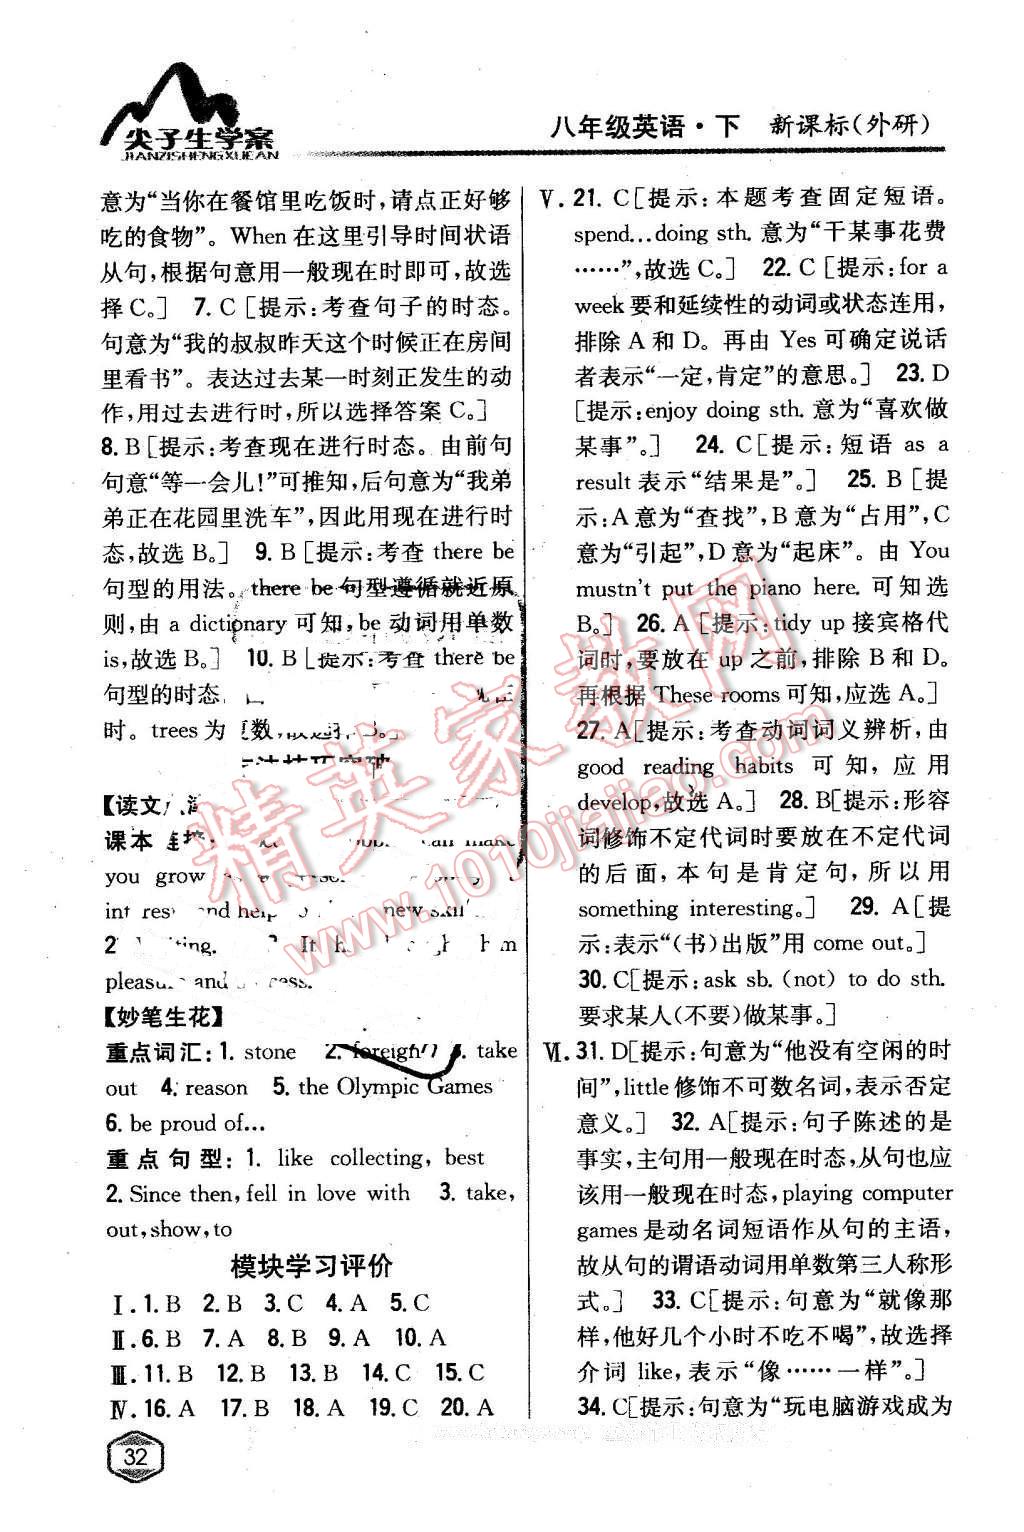 尖子生学案
JIANZISHENGXUEAN
八年级英语·下 新课标(外研)
意为“当你在餐馆里吃饭时,请点正好够
吃的食物”。When在这里引导时间状语
从句,根据句意用一般现在时即可,故选
择C。] 7. C [提示:考查句子的时态。
句意为“我的叔叔昨天这个时候正在房间
里看书”。表达过去某一时刻正发生的动
作,用过去进行时,所以选择答案C。]
8. B [提示:考查现在进行时态。由前句
句意“等一会儿!”可推知,后句意为“我弟
弟正在花园里洗车”,因此用现在进行时
态,故选B。] 9. B [提示:考查 there be
句型的用法。there be 句型遵循就近原
则,由 a dictionary 可知,be 动词用单数
is,故选B。] 10. B [提示:考查 there be
句型的时态
时。trees 为
【读文
课本 can make
you grow
and help new skil
2
pleasure and
【妙笔生花】
重点词汇:1. stone 2. foreign 3. take
out 4. reason 5. the Olympic Games
6. be proud of...
重点句型:1. like collecting, best
2. Since then, fell in love with 3. take,
out, show, to
模块学习评价
Ⅰ. 1. B 2. B 3. C 4. A 5. C
Ⅱ. 6. B 7. A 8. B 9. A 10. A
Ⅲ. 11. B 12. B 13. B 14. C 15. C
Ⅳ. 16. A 17. B 18. A 19. C 20. A
32
Ⅴ. 21. C [提示:本题考查固定短语。
spend...doing sth. 意为“干某事花费
……”,故选C。] 22. C [提示:for a
week 要和延续性的动词或状态连用,
排除 A 和 D。再由 Yes 可确定说话
者表示“一定,肯定”的意思。] 23. D
[提示:enjoy doing sth. 意为“喜欢做
某事”。] 24. C [提示:短语 as a
result 表示“结果是”。] 25. B [提
示:A 意为“查找”,B 意为“占用”,C
意为“引起”,D 意为“起床”。由 You
mustn't put the piano here. 可知选
B。] 26. A [提示:tidy up 接宾格代
词时,要放在 up 之前,排除 B 和 D。
再根据 These rooms 可知,应选 A。]
27. A [提示:考查动词词义辨析,由
good reading habits 可知,应用
develop,故选 A。] 28. B [提示:形容
词修饰不定代词时要放在不定代词
的后面,本句是肯定句,所以用
something interesting。] 29. A [提
示:表示“(书)出版”用 come out。]
30. C [提示:ask sb. (not) to do sth.
要求某人(不要)做某事。]
Ⅵ. 31. D [提示:句意为“他没有空闲的时
间”,little 修饰不可数名词,表示否定
意义。] 32. A [提示:句子陈述的是
事实,主句用一般现在时态,从句也应
该用一般现在时态,playing computer
games 是动名词短语作从句的主语,
故从句的谓语动词用单数第三人称形
式。] 33. C [提示:句意为“就像那
样,他好几个小时不吃不喝”,故选择
介词 like,表示“像……一样”。]
34. C [提示:句意为“玩电脑游戏成为
精英家教网
www.1010jiajiao.com